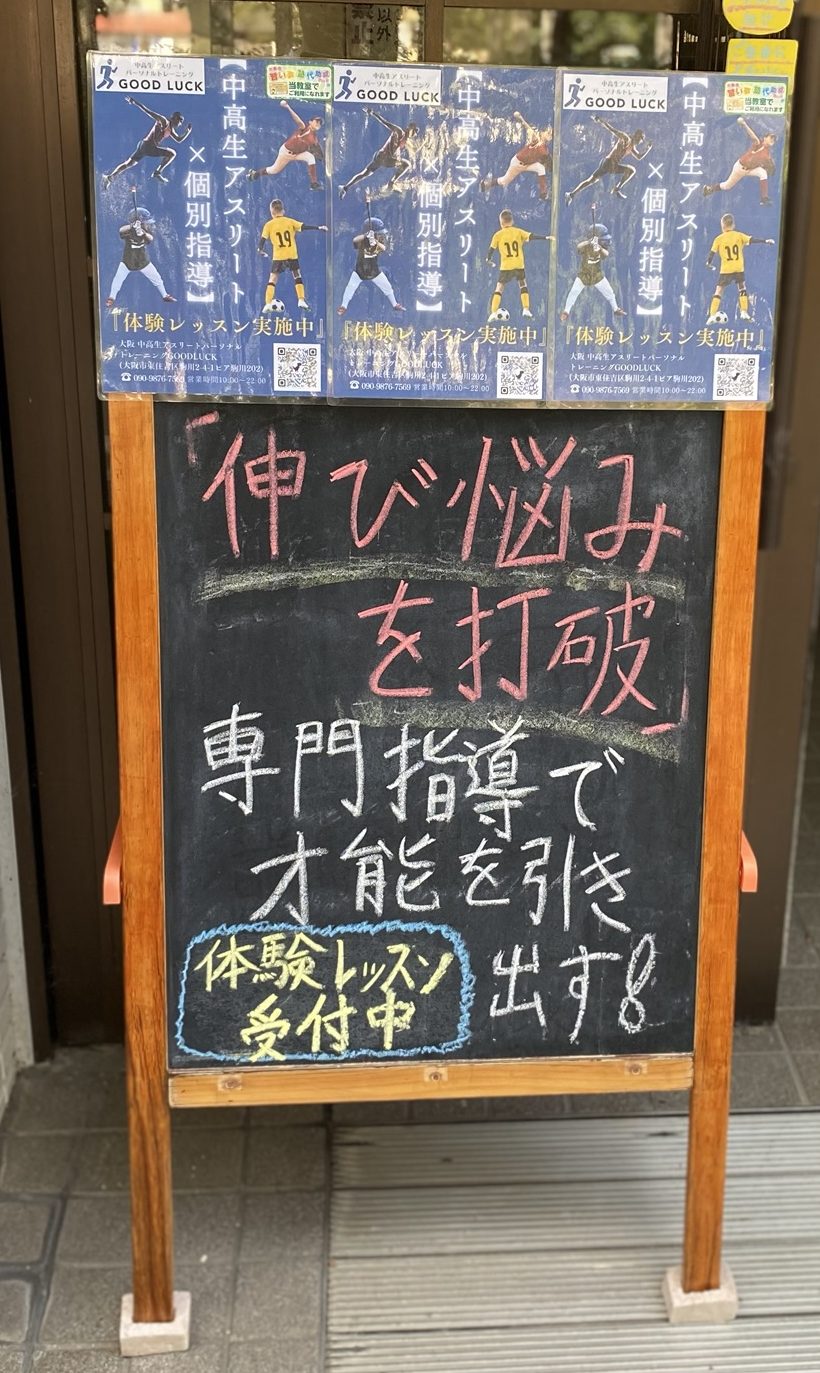 以外
中高生アスリート
パーソナルトレーニング
GOOD LUCK
習い事・塾代助成
当教室で
ご利用になれます
【中高生アスリート
×個別指導】
19
『体験レッスン実施中』
大阪 中高生アスリートパーソナル
トレーニングGOODLUCK
(大阪市東住吉区駒川2-4-1ピア駒川202)
☎090-9876-7569 営業時間10:00~22:00
中高生アスリート
パーソナルトレーニング
GOOD LUCK
当教室で
ご利用になれます
【中高生アスリート
×個別指導】
19
『体験レッスン実施中』
大阪 中高生アスリートパーソナル
トレーニングGOODLUCK
(大阪市東住吉区駒川2-4-1ピア駒川202)
☎090-9876-7569 営業時間10:00~22:00
中高生アスリート
パーソナルトレーニング
GOOD LUCK
習い事・塾代助成
当教室で
ご利用になれます
【中高生アスリート
×個別指導】
19
『体験レッスン実施中』
大阪 中高生アスリートパーソナル
トレーニングGOODLUCK
(大阪市東住吉区駒川2-4-1ピア駒川202)
☎090-9876-7569 営業時間10:00~22:00
「伸び悩み
を打破」
専門指導で
才能を引き
出す!!
体験レッスン
受付中